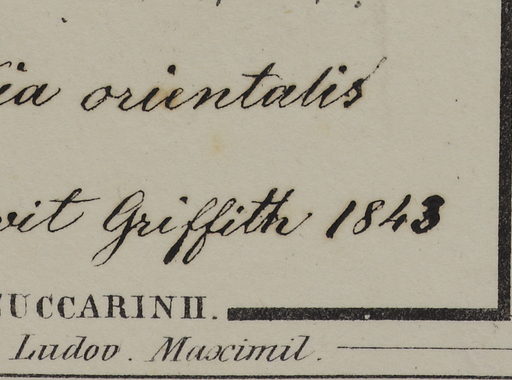 ia orientalis
vit Griffith 1843
ZUCCARINII.
Ludov. Maximil.